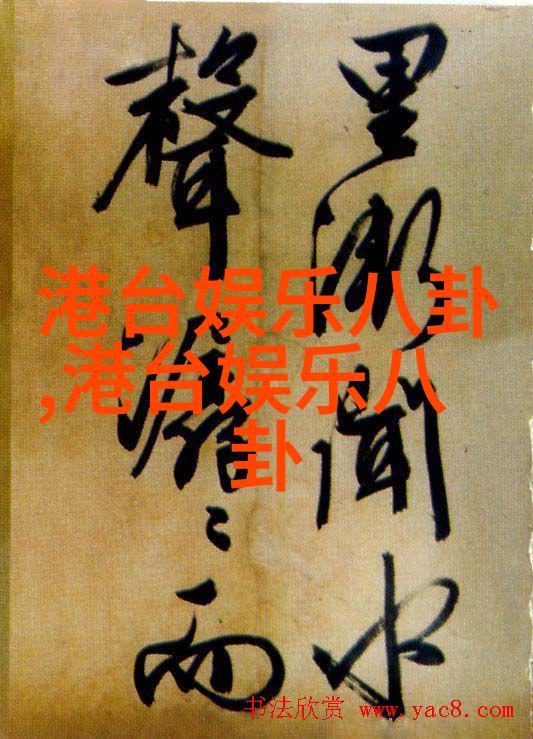 里漸聞水
聲潺〻而
港台娱乐八卦
,港台娱乐八
卦
书法欣赏 www.yac8.com